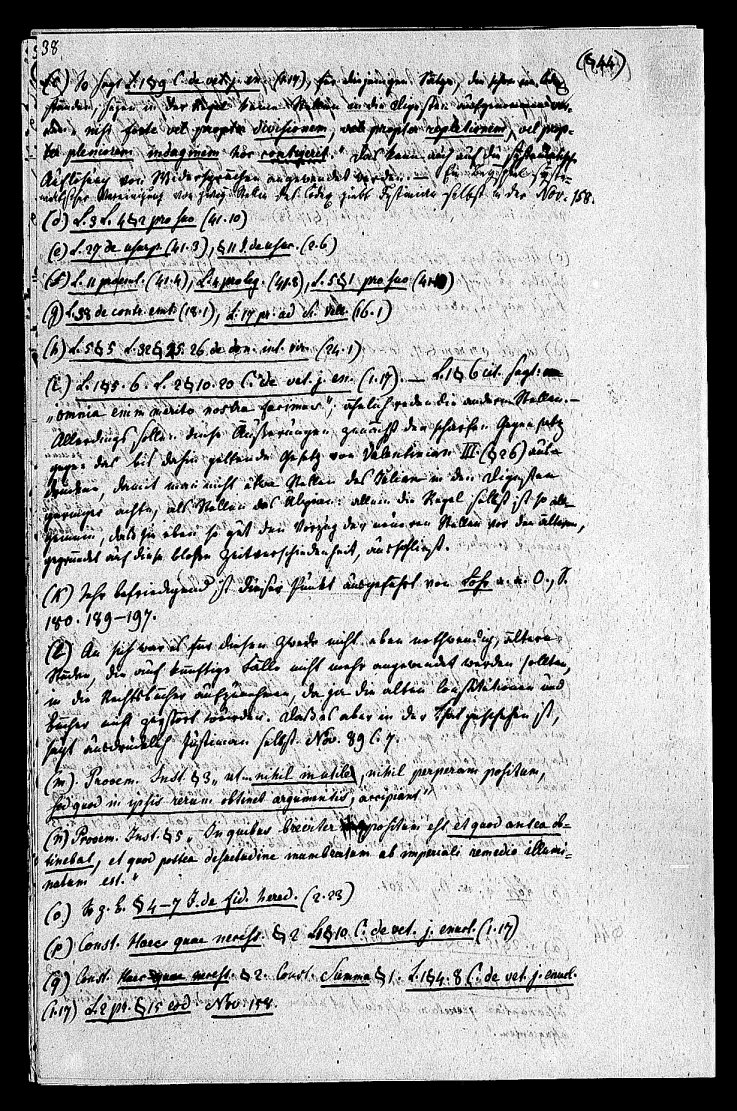 38
(§ 44.)
(c) So sagt L. 1 § 9 C. de vet. j. en. (1.17), für diejenigen Sätze, die schon im Codex
stünden, seyen in der Regel keine Stellen in die Digesten aufgenommen wor-
den, nisi forte vel propter divisionem, vel propter repletionem, vel prop-
ter pleniorem indaginem hoc contigerit." Das kann auch auf die systematische
Auflösung von Widersprüchen angewendet werden. — Ein Beyspiel syste-
matischer Vereinigung von zwey Stellen des Codex giebt Justinian selbst in der Nov. 158.
(d) L. 3 L. 4 § 2 pro suo (41.10)
(e) L. 27 de usurp. (41.3), § 11 J. de usuc. (2.6)
(f) L. 11 pro emt. (41.4), L. 4 pro leg. (41.8), L. 5 § 1 pro suo (41.10)
(g) L. 38 de contr. emt. (18.1), L. 17 pr. ad Sc. Vell. (16.1)
(h) L. 5 § 5 L. 32 § 25. 26 de don. int. vir. (24.1)
(i) L. 1 § 5. 6. L. 2 § 10. 20 C. de vet. j. en. (1.17). — L. 1 § 6 cit. sagt:
„omnia enim merito nostra facimus"; ähnlich reden die andern Stellen. —
Allerdings sollen diese Äußerungen zunächst den scharfen Gegensatz
gegen das bis dahin geltende Gesetz von Valentinian III (§ 26) aus-
drücken, damit man nicht etwa Stellen des Julian in den Digesten
geringer achte, als Stellen des Ulpian: allein die Regel selbst ist so all-
gemein, daß sie eben so gut den Vorzug der neueren Stellen vor den ältern,
gegründet auf diese bloße Zeitverschiedenheit, ausschließt.
(k) Sehr befriedigend ist dieser Punkt ausgeführt von Löhr a. a. O., S.
180. 189–197.
(l) An sich war es für diesen Zweck nicht eben nothwendig, ältere
Stücke, die auf künftige Fälle nicht mehr angewendet werden sollten,
in die Rechtsbücher aufzunehmen, da ja die alten Constitutionen und
Bücher nicht zerstört wurden. Daß es aber in der That geschehen ist,
sagt ausdrücklich Justinian selbst. Nov. 89 C. 7.
(m) Prooem. Inst. § 3 „ut .. nihil inutile, nihil perperam positum,
sed quod in ipsis rerum obtinet argumentis, accipiant"
(n) Prooem. Inst. § 5 „In quibus breviter expositum est, et quod antea ob-
tinebat, et quod postea desuetudine inumbratum ab imperiali remedio illumi-
natum est."
(o) So z. B. § 4–7 J. de fid. hered. (2.23)
(p) Const. Haec quae necess. § 2 L. 1 § 10 C. de vet. j. enucl. (1.17)
(q) Const. Haec quae necess. § 2. Const. Summa § 1. L. 1 § 4. 8 C. de vet. j. enucl.
(1.17) L. 2 pr. § 15 eod Nov. 158.